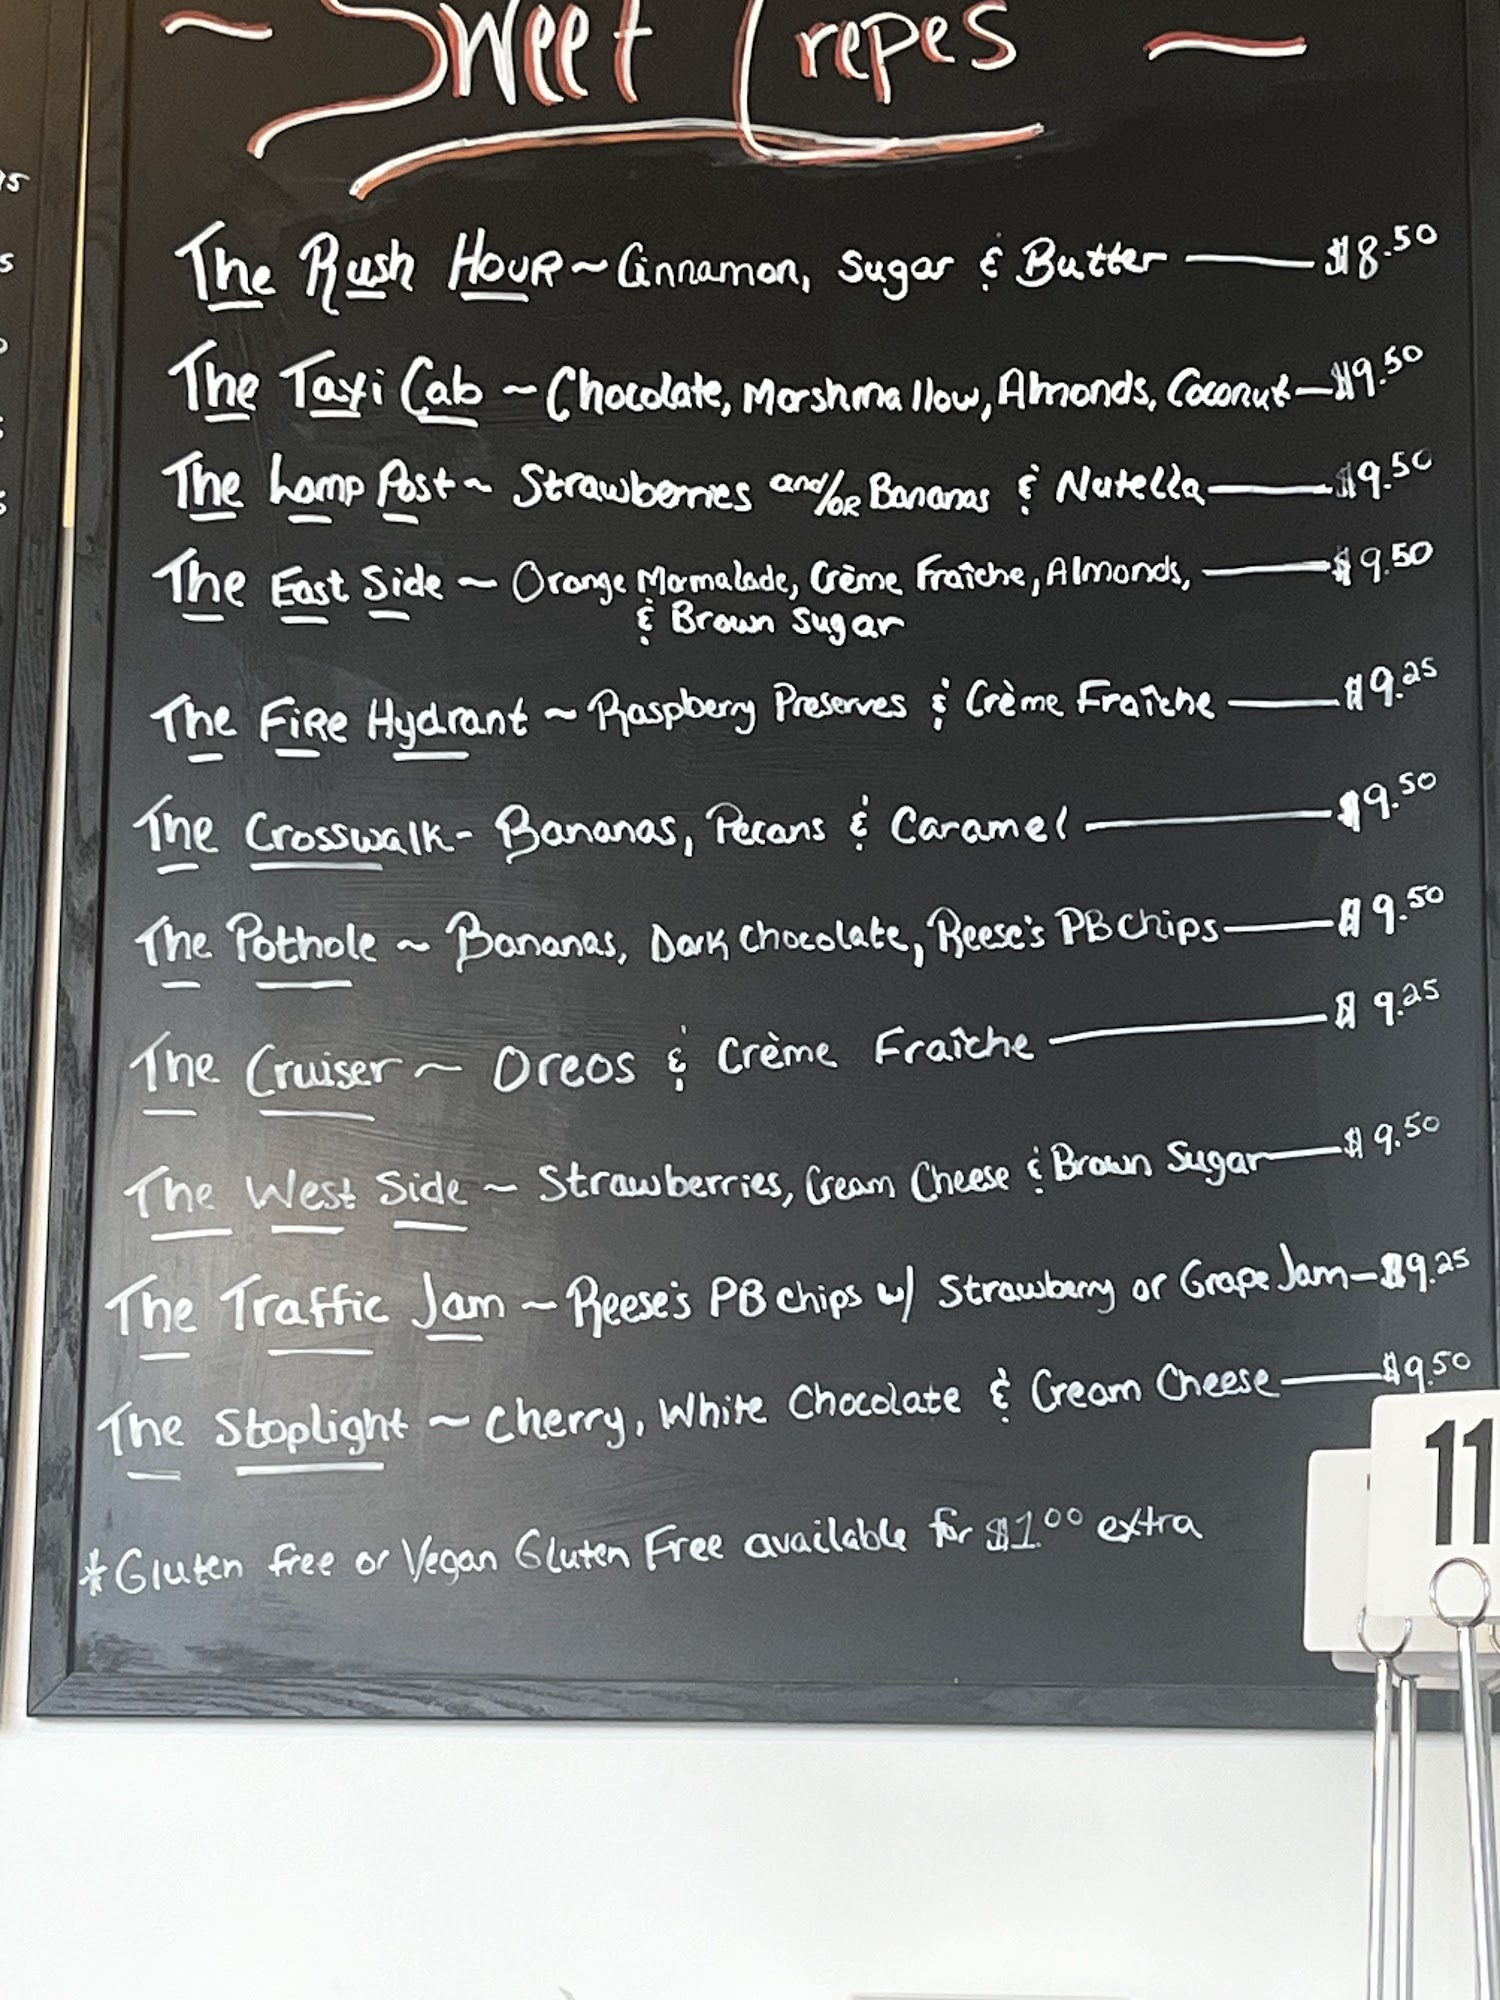 ~ Sweet Crepes ~
The Rush Hour ~ Cinnamon, Sugar & Butter — $8.50
The Taxi Cab ~ Chocolate, Marshmallow, Almonds, Coconut — $9.50
The Lamp Post ~ Strawberries and/or Bananas & Nutella — $9.50
The East Side ~ Orange Marmalade, Crème Fraîche, Almonds, — $9.50
& Brown Sugar
The Fire Hydrant ~ Raspberry Preserves & Crème Fraîche — $9.25
The Crosswalk - Bananas, Pecans & Caramel — $9.50
The Pothole ~ Bananas, Dark Chocolate, Reese's PB Chips — $9.50
The Cruiser ~ Oreos & Crème Fraîche — $9.25
The West Side ~ Strawberries, Cream Cheese & Brown Sugar — $9.50
The Traffic Jam ~ Reese's PB chips w/ Strawberry or Grape Jam — $9.25
The Stoplight ~ Cherry, White Chocolate & Cream Cheese — $9.50
*Gluten free or Vegan Gluten Free available for $1.00 extra
11